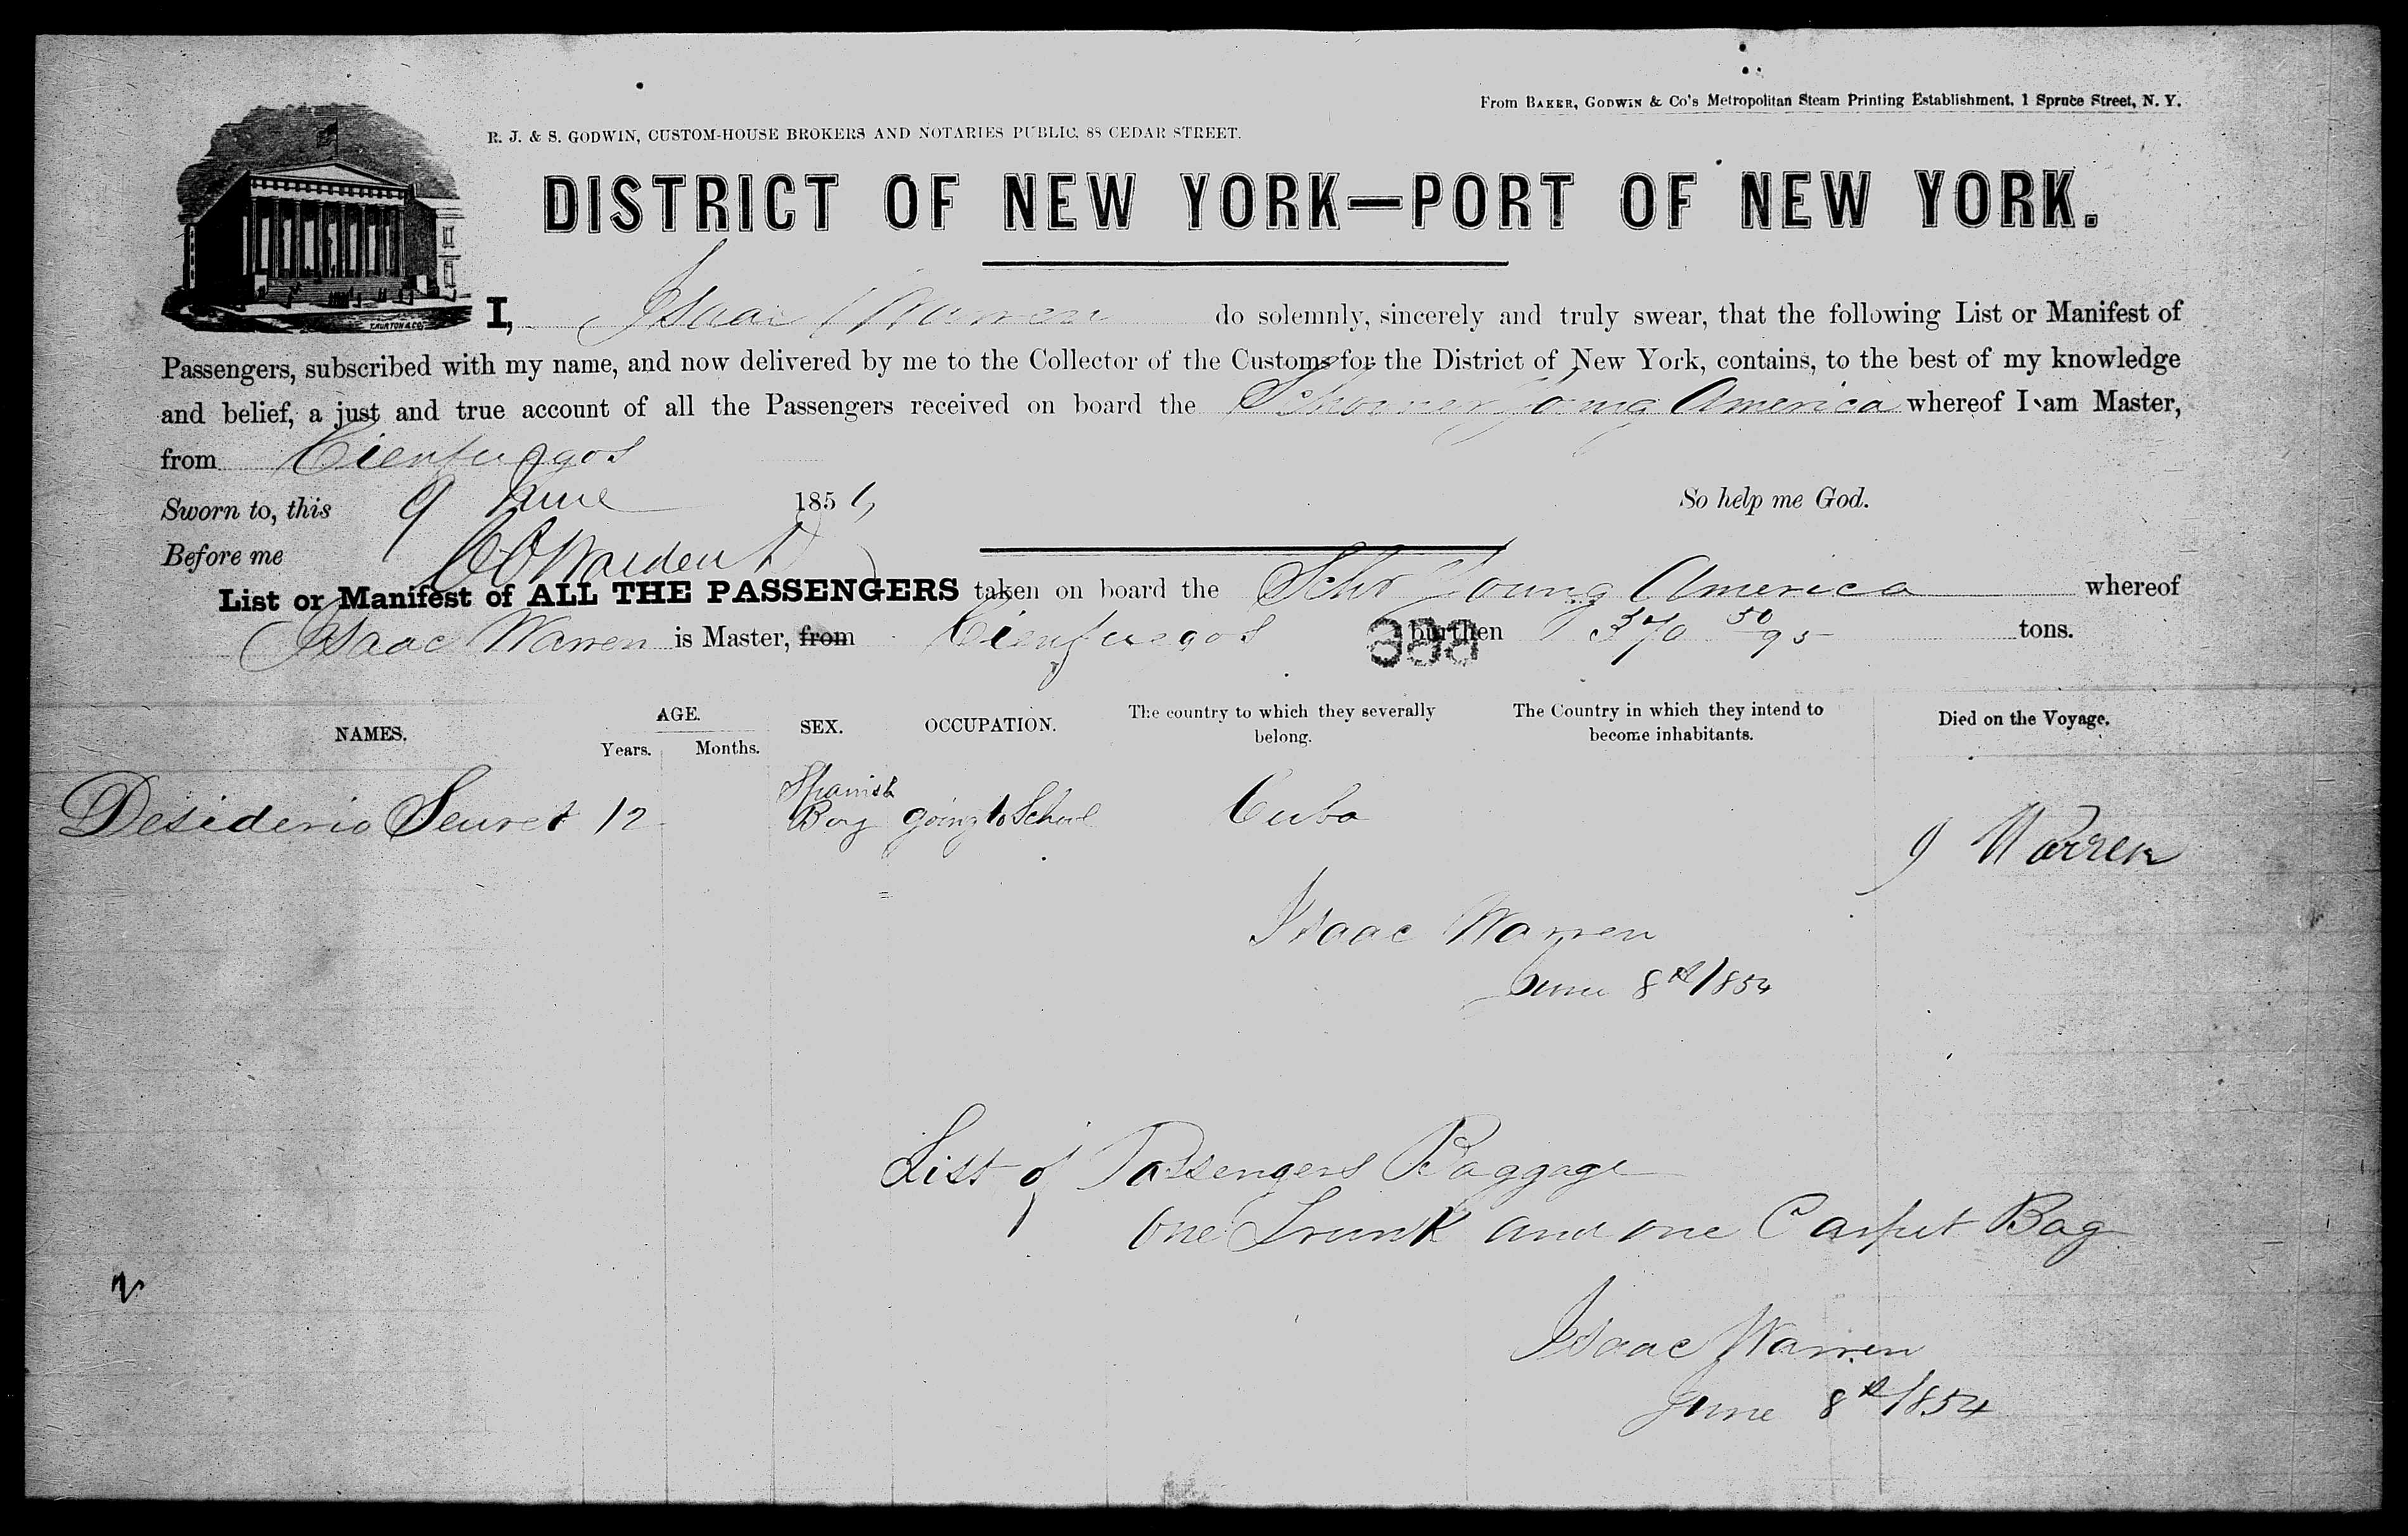 From BAKER, GODWIN & Co's Metropolitan Steam Printing Establishment, 1 Spruce Street, N. Y.
R. J. & S. GODWIN, CUSTOM-HOUSE BROKERS AND NOTARIES PUBLIC, 88 CEDAR STREET.
DISTRICT OF NEW YORK—PORT OF NEW YORK.
I, Isaac Warren do solemnly, sincerely and truly swear, that the following List or Manifest of
Passengers, subscribed with my name, and now delivered by me to the Collector of the Customs for the District of New York, contains, to the best of my knowledge
and belief, a just and true account of all the Passengers received on board the Schooner Young America whereof I am Master,
from Cienfuegos
Sworn to, this 9 June 185 So help me God.
Before me
List or Manifest of ALL THE PASSENGERS taken on board the Schr Young America whereof
Isaac Warren is Master, from Cienfuegos burthen 370 50/95 tons.
NAMES. AGE. Years. Months. SEX. OCCUPATION. The country to which they severally belong. The Country in which they intend to become inhabitants. Died on the Voyage.
Desiderio Seuret 12 Spanish Boy going to School Cuba
I Warren
Isaac Warren
June 8th/1854
List of Passengers Baggage
one Trunk and one Carpet Bag
Isaac Warren
June 8th/1854